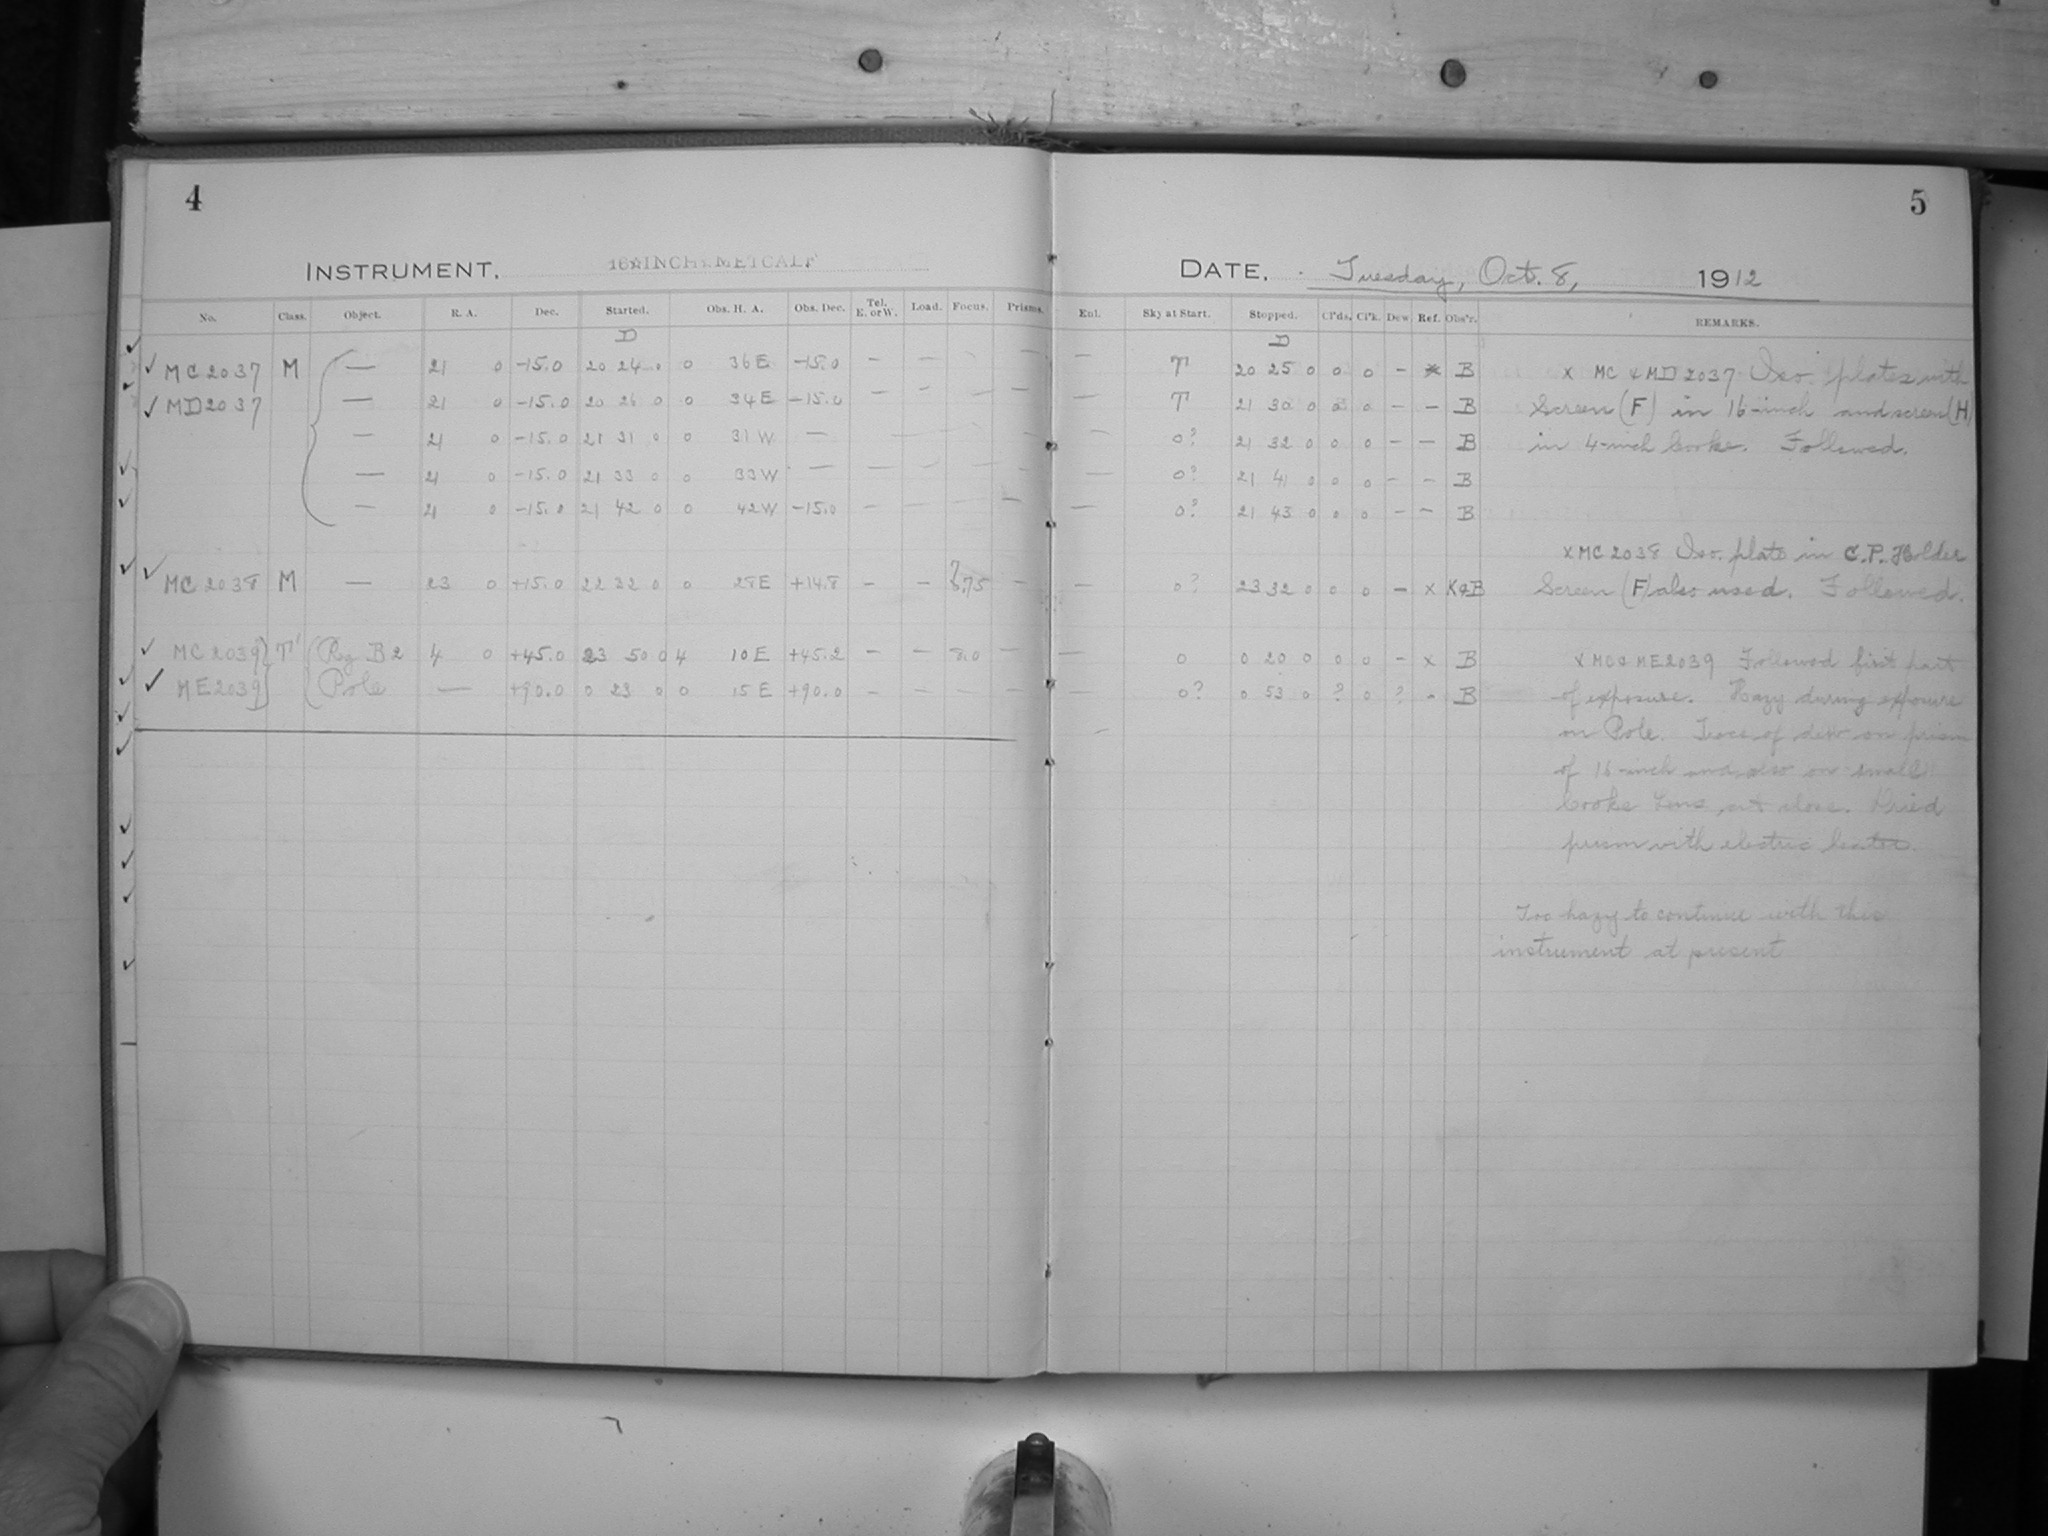 4
INSTRUMENT. 16 INCH METCALF
No. Class. Object. R. A. Dec. Started. Obs. H. A. Obs. Dec. Tel. E. or W. Load. Focus. Prisms.
D
MC 2037 M — 21 0 -15.0 20 24 0 0 36 E -15.0 — — — —
MD 2037 — 21 0 -15.0 20 26 0 0 34 E -15.0 — — — —
— 21 0 -15.0 21 31 0 0 31 W —
— 21 0 -15.0 21 33 0 0 33 W —
— 21 0 -15.0 21 42 0 0 42 W -15.0 — —
MC 2038 M — 23 0 +15.0 22 32 0 0 28 E +14.8 — — —
MC 2039 T' Rg B 2 4 0 +45.0 23 50 0 4 10 E +45.2 — — 8.0 —
ME 2039 Pole — +90.0 0 23 0 0 15 E +90.0 — — — —
5
DATE. Tuesday, Oct. 8, 1912
Enl. Sky at Start. Stopped. Cl'ds. Cl'k. Dew. Ref. Obs'r. REMARKS.
D
— T 20 25 0 0 0 — x B x MC & MD 2037 Iso. plates with
— T 21 30 0 0 0 — — B Screen (F) in 16-inch and screen (H)
— 0? 21 32 0 0 0 — — B in 4-inch Cooke. Followed.
— 0? 21 41 0 0 0 — — B
— 0? 21 43 0 0 0 — — B
x MC 2038 Iso. plate in C.P. Holder
— 0? 23 32 0 0 0 — x K&B Screen (F) also used. Followed.
— 0 0 20 0 0 0 — x B x MC & ME 2039 Followed first part
— 0? 0 53 0 ? 0 ? - B of exposure. Hazy during exposure
on Pole. Trace of dew on prism
of 16-inch and also on small
Cooke Lens, at close. Dried
prism with electric heater.
Too hazy to continue with this
instrument at present